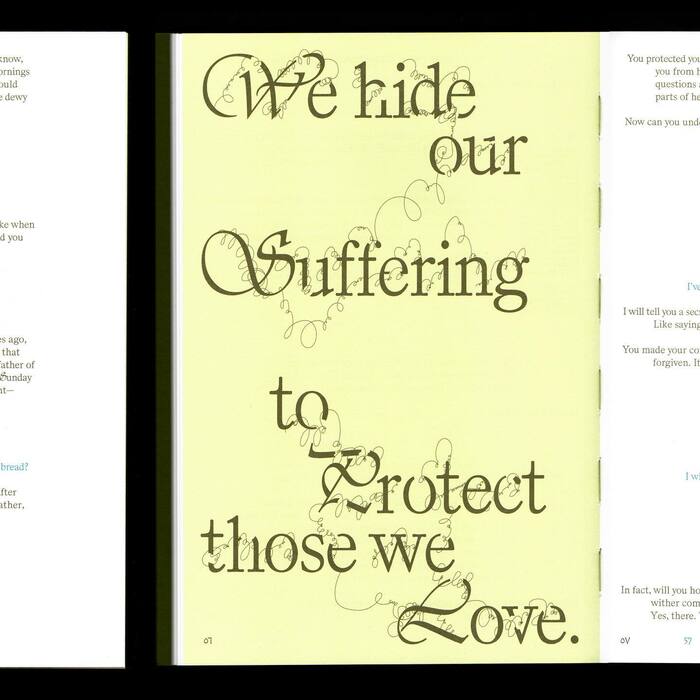 know,
ornings
ould
e dewy
ke when
d you
es ago,
that
father of
Sunday
nt—
bread?
fter
ather,
We hide
our
Suffering
to
Protect
those we
Love.
You protected you
you from h
questions a
parts of he
Now can you unde
I've
I will tell you a secr
Like saying
You made your co
forgiven. It
I wi
In fact, will you ho
wither com
Yes, there.
57